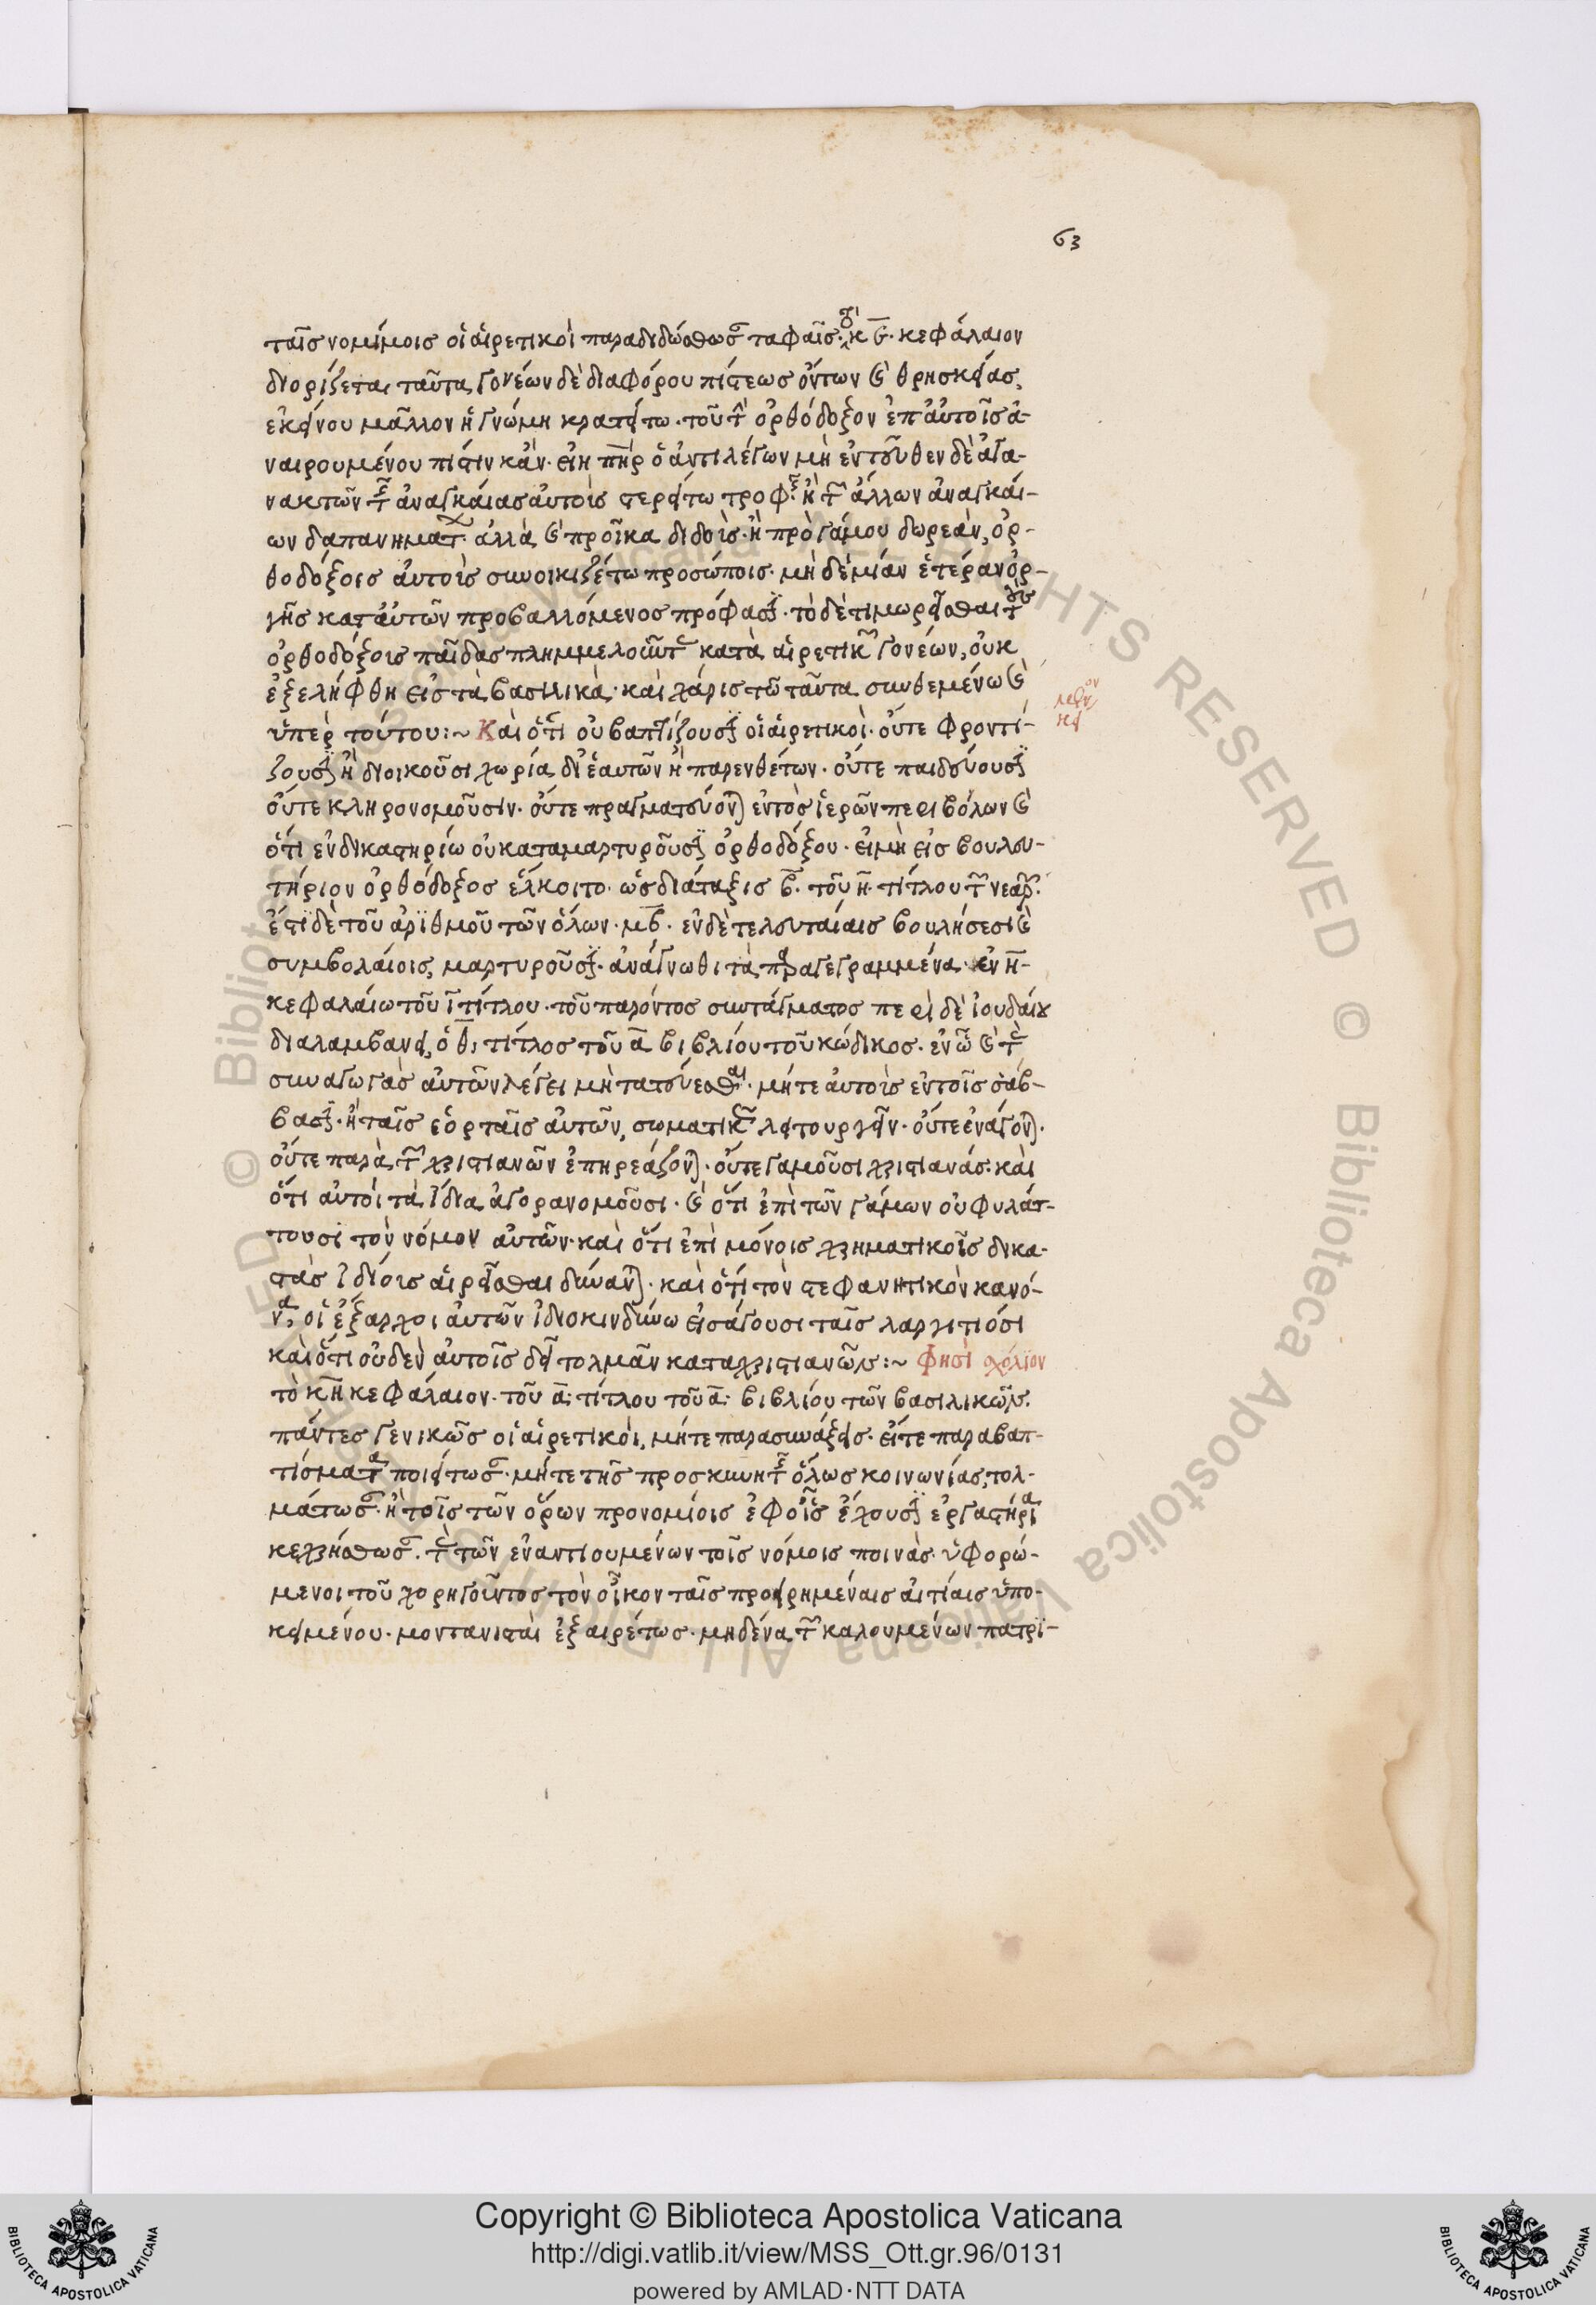 63
ταῖς νομίμοις οἱ αἱρετικοὶ παραδιδόσθωσ ταφαῖς. κς. κεφάλαιον
διορίζεται ταῦτα, γονέων δὲ διαφόρου πίστεως ὄντων καὶ θρησκείας,
ἐκείνου μᾶλλον ἡ γνώμη κρατείτω. τοῦ τὴν ὀρθόδοξον ἐπ' αὐτοῖς ἀ-
ναιρουμένου πίστιν κἄν. εἴη πηρ ὁ ἀντιλέγων μὴ ἐντεῦθεν δὲ ἀγα-
νακτῶν τῆς ἀναγκαίας αὐτοὺς στερείτω τροφῆς ἢ τῶν ἄλλων ἀναγκαί-
ων δαπανημάτων. ἀλλὰ καὶ προῖκα διδοὺς. ἢ πρὸ γάμου δωρεὰν, ὀρ-
θοδόξοις αὐτοὺς συνοικιζέτω προσώποις. μὴ δὲ μίαν ἑτέραν ὀρ-
γῆς κατ' αὐτῶν προβαλλόμενος πρόφασιν. τὸ δὲ τιμωρεῖσθαι τοὺς
ὀρθοδόξοις παῖδας πλημμελοῦντας κατὰ αἱρετικῶν γονέων, οὐκ
ἐξελήφθη εἰς τὰ βασιλικὰ. καὶ χάρις τῶ ταῦτα συνθεμένω καὶ
ὑπὲρ τούτου:~ Καὶ ὅτι οὐ βαπτίζουσιν οἱ αἱρετικοὶ. οὔτε φροντί-
ζουσιν ἢ διοικοῦσι χωρία δι' ἑαυτῶν ἢ παρενθέτων. οὔτε παιδεύουσιν
οὔτε κληρονομοῦσιν. οὔτε πραγματεύονται ἐντὸς ἱερῶν περιβόλων καὶ
ὅτι ἐν δικαστηρίω οὐ καταμαρτυροῦσιν ὀρθοδόξου. εἰμὴ εἰς βουλευ-
τήριον ὀρθόδοξος ἕλκοιτο. ὡς διάταξις β. τοῦ η. τίτλου τῶν νεαρῶν.
ἔστι δὲ τοῦ ἀριθμοῦ τῶν ὅλων. μβ. ἐν δὲ τελευταίαις βουλήσεσι καὶ
συμβολαίοις, μαρτυροῦσιν. ἀνάγνωθι τὰ παραγεγραμμένα. ἐν η-
κεφαλαίω τοῦ ι τίτλου. τοῦ παρόντος συντάγματος περὶ δὲ ἰουδαίου
διαλαμβάνει, ὁ θ, τίτλος τοῦ α βιβλίου τοῦ κώδικος. ἐν ὧ καὶ τὰς
συναγωγὰς αὐτῶν λέγει μὴ πατεύεσθαι. μήτε αὐτοὺς ἐν τοῖς σάβ-
βασιν. ἢ ταῖς ἑορταῖς αὐτῶν, σωματικῶς λειτουργεῖν. οὔτε ἐνάγονται.
οὔτε παρὰ τῶν χριστιανῶν ἐπηρεάζονται. οὔτε γαμοῦσι χριστιανάς. καὶ
ὅτι αὐτοὶ τὰ ἴδια ἀγορανομοῦσι. καὶ ὅτι ἐπὶ τῶν γάμων οὐ φυλάτ-
τουσι τὸν νόμον αὐτῶν. καὶ ὅτι ἐπὶ μόνοις χρηματικοῖς δικα-
στὰς ἰδίοις αἱρεῖσθαι δύνανται. καὶ ὅτι τὸν στεφανητικὸν κανό-
να, οἱ ἔξαρχοι αὐτῶν ἰδιοκινδύνω εἰσάγουσι ταῖς λαργιτιόσι
καὶ ὅτι οὐδὲν αὐτοῖς δεῖ τολμᾶν κατα χριστιανῶν:~ Φησὶ σχόλιον
τὸ κη κεφάλαιον. τοῦ α. τίτλου τοῦ α. βιβλίου τῶν βασιλικῶν.
πάντες γενικῶς οἱ αἱρετικοὶ, μήτε παρασυνάξεις. εἴτε παραβαπ-
τίσματα ποιείτωσαν. μήτε τῆς προσκυνητῆς ὅλως κοινωνίας, τολ-
μάτωσαν. ἢ τοῖς τῶν ὅρων προνομίοις ἐφ' οἷς ἔχουσιν ἐργαστήρια
κεχρήσθωσαν. τὰς τῶν ἐναντιουμένων τοῖς νόμοις ποινὰς. ὑφορώ-
μενοι τοῦ χορηγοῦντος τὸν οἶκον ταῖς προειρημέναις αἰτίαις ὑπο-
κειμένου. μοντανισταὶ ἐξαιρέτως. μηδένα τῶν καλουμένων πατρι-
Copyright © Biblioteca Apostolica Vaticana
http://digi.vatlib.it/view/MSS_Ott.gr.96/0131
powered by AMLAD·NTT DATA